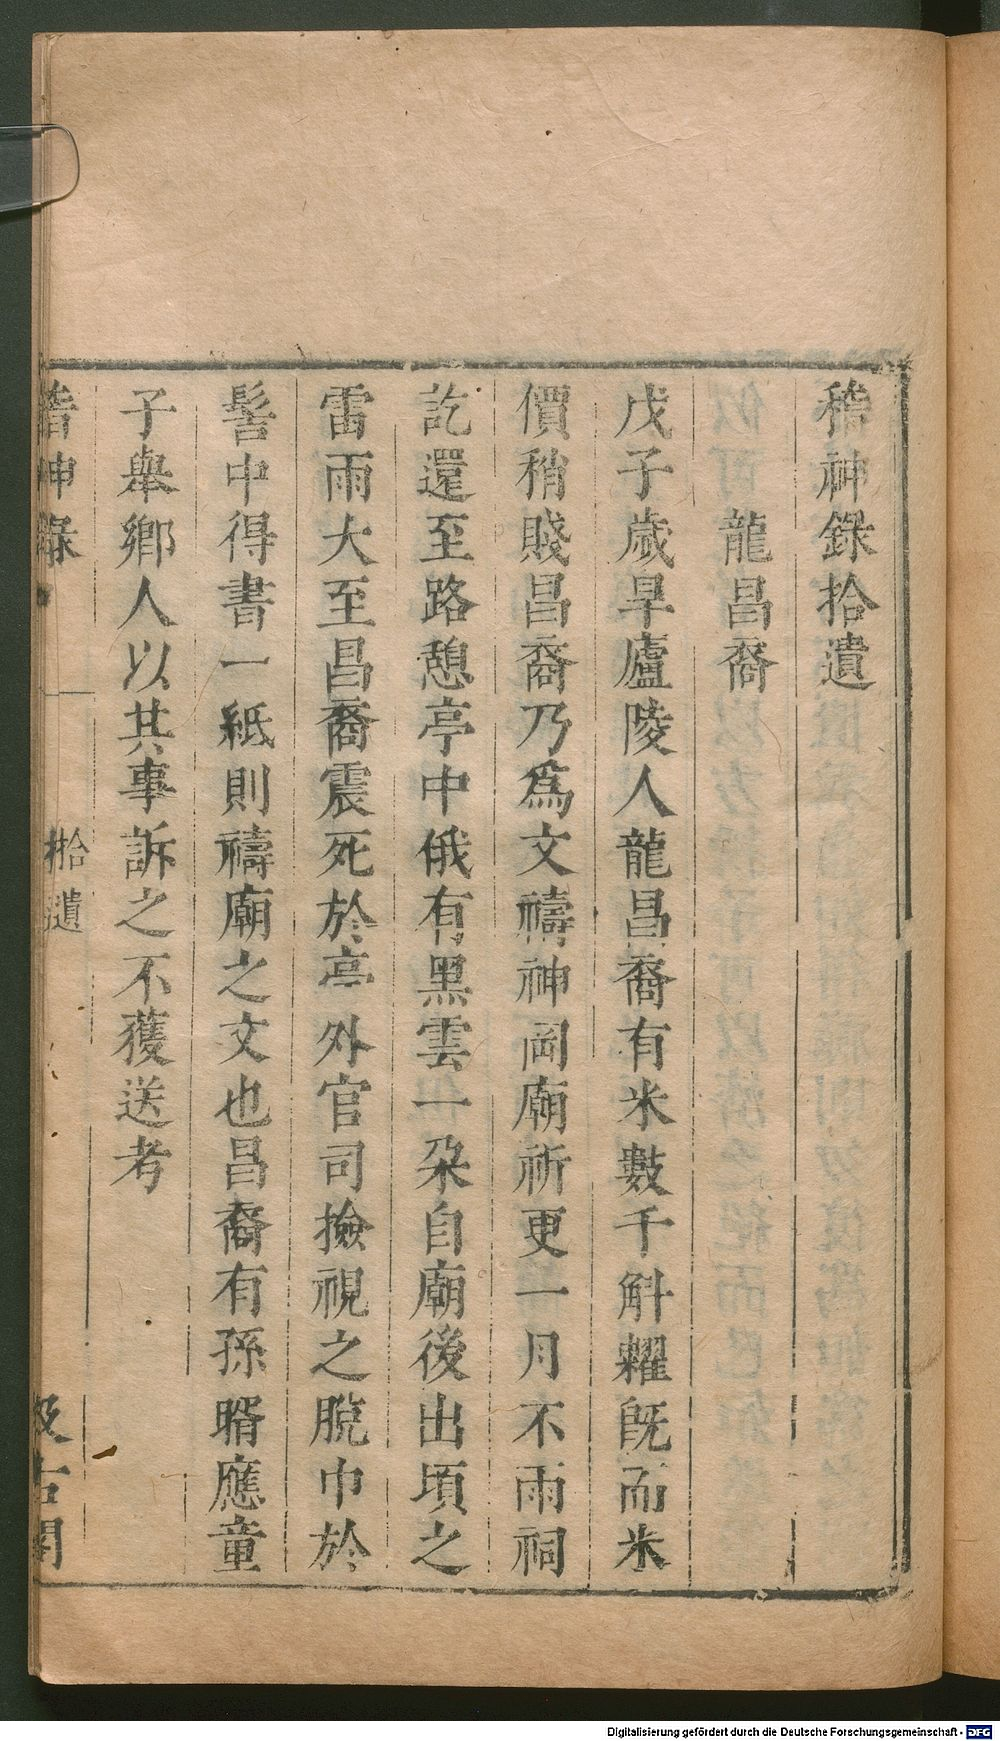 稽神錄拾遺
龍昌裔
戊子歲旱廬陵人龍昌裔有米數千斛糶旣而米
價稍賤昌裔乃爲文禱神岡廟祈更一月不雨祠
訖還至路憩亭中俄有黑雲一朶自廟後出頃之
雷雨大至昌裔震死於亭外官司撿視之脫巾於
髻中得書一紙則禱廟之文也昌裔有孫壻應童
子舉鄉人以其事訴之不獲送考
稽神錄
拾遺
汲古閣
Digitalisierung gefördert durch die Deutsche Forschungsgemeinschaft - DFG